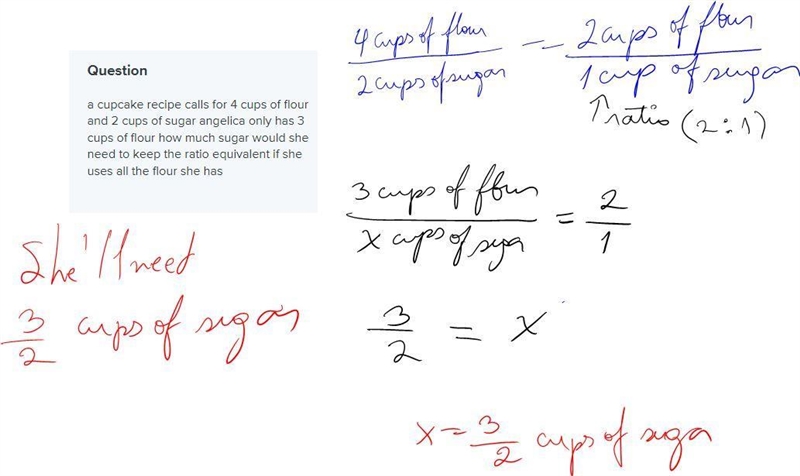 Question
a cupcake recipe calls for 4 cups of flour
and 2 cups of sugar angelica only has 3
cups of flour how much sugar would she
need to keep the ratio equivalent if she
uses all the flour she has
4 cups of flour
2 cups of sugar
=
2 cups of flour
1 cup of sugar
↑ ratio (2:1)
3 cups of flour
x cups of suga
= 2/1
3/2 = x
x = 3/2 cups of suga
She'll need
3/2 cups of sugar